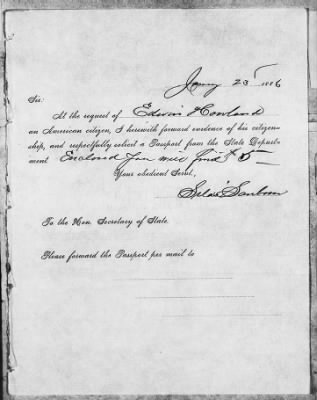 Jany 23 1886
Sir:
At the request of Edwin Howland
an American citizen, I herewith forward evidence of his citizen-
ship, and respectfully solicit a Passport from the State Depart-
ment Enclosed you will find $5
Your obedient Servt.,
Silas Sanborn
To the Hon. Secretary of State.
Please forward the Passport per mail to